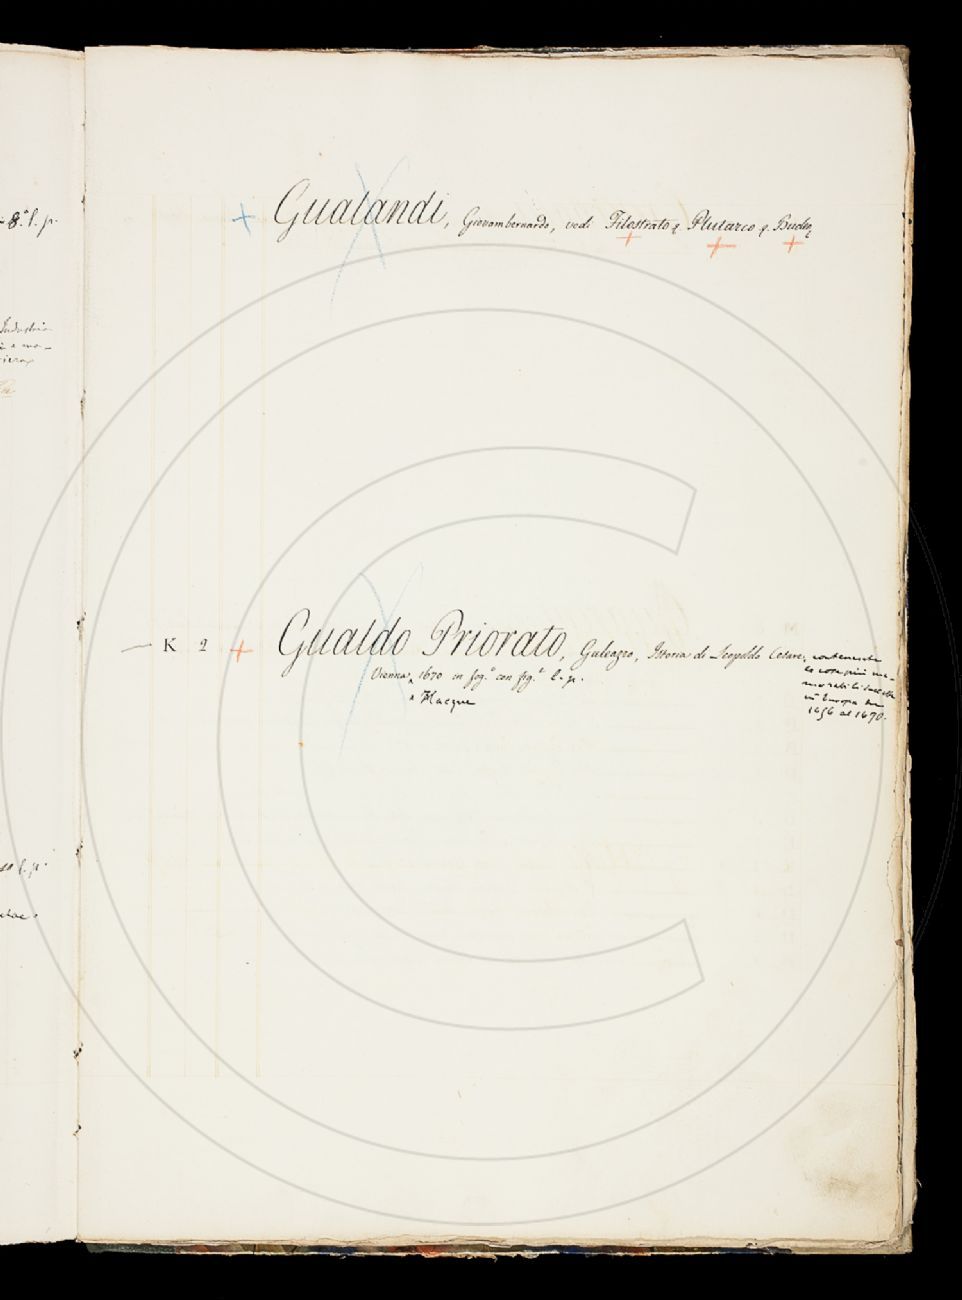 8.° l. p.
Industria
Gualandi, Giovambernardo, vedi Filostrato e Plutarco e. Budeo
K 2 Gualdo Priorato, Galeazzo, Istoria di Leopoldo Cesare, contenente
le cose più me-
morabili
in Europa
1656 al 1670.
Vienna, 1670 in fog.° con fig.e l. p.
a Hacque
l. p.